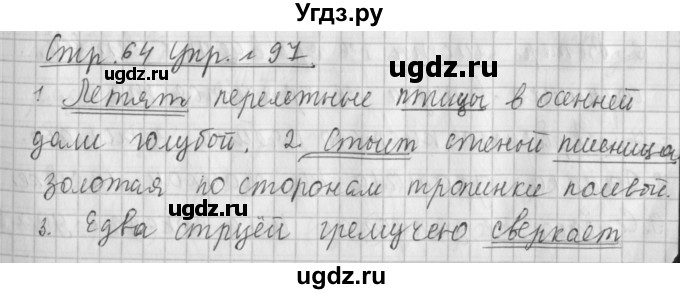 Угдз.ру
Стр. 64 упр. 97.
ugdz.ru ugdz.ru
1 Летят перелетные птицы в осенней
дали голубой. 2 Стоит стеной пшеница
ugdz.ru
золотая по сторонам тропинки полевой.
3. Едва струёй гремучею сверкает
ugdz.ru
ugdz.ru